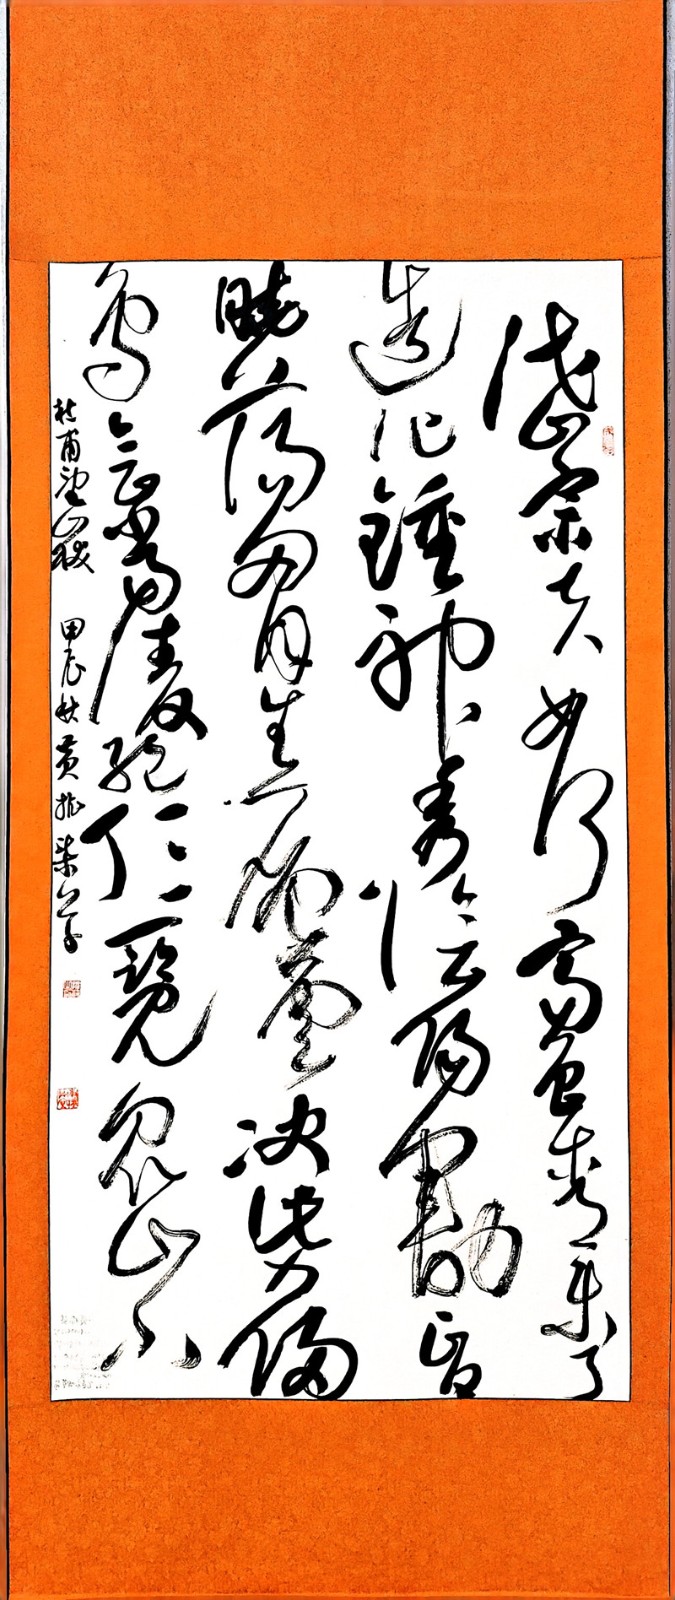 岱宗夫如何齊魯青未了
造化鍾神秀陰陽割昏
曉蕩胸生層雲決眥入歸
鳥會當凌絕頂一覽眾山小
杜甫望嶽 甲辰秋黃